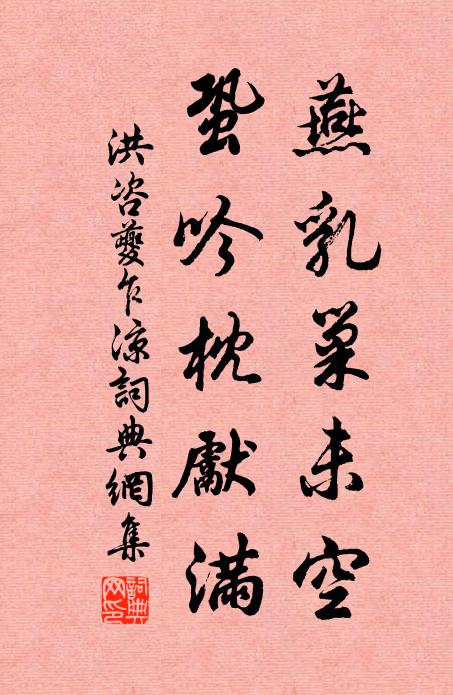 燕乳巢未空
蛩吟枕獻滿
洪咨夔乍涼詞典網集
詞典網印